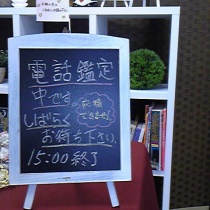 電話鑑定
中です。
しばらく
お待ち下さい。
応接
できません
15:00 終了